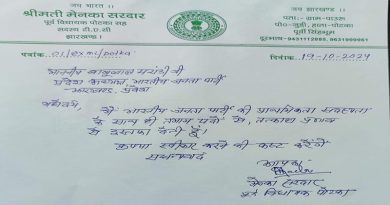 जय भारत !
जय झारखण्ड !
श्रीमती मेनका सरदार
पूर्व विधायक पोटका सह
सदस्य टी.ए.सी
झारखण्ड।
पता:- ग्राम-पाउरू
पो०-जुड़ी, हाता-पोटका
पूर्वी सिंहभूम
पत्रांक 01/exml/potka
दिनांक 19-10-2024
माननीय बाबूलाल मरांडी जी
प्रदेश अध्यक्ष भारतीय जनता पार्टी
झारखण्ड, प्रदेश
महोदय,
मैं भारतीय जनता पार्टी की प्राथमिकता सदस्यता
के साथ ही तमाम पदों से, तत्काल प्रभाव
से इस्तफा देती हूँ।
कृपया स्वीकार करने की कष्ट करेंगे
सधन्यवाद
आपका
मेनका सरदार
पूर्व विधायक पोटका